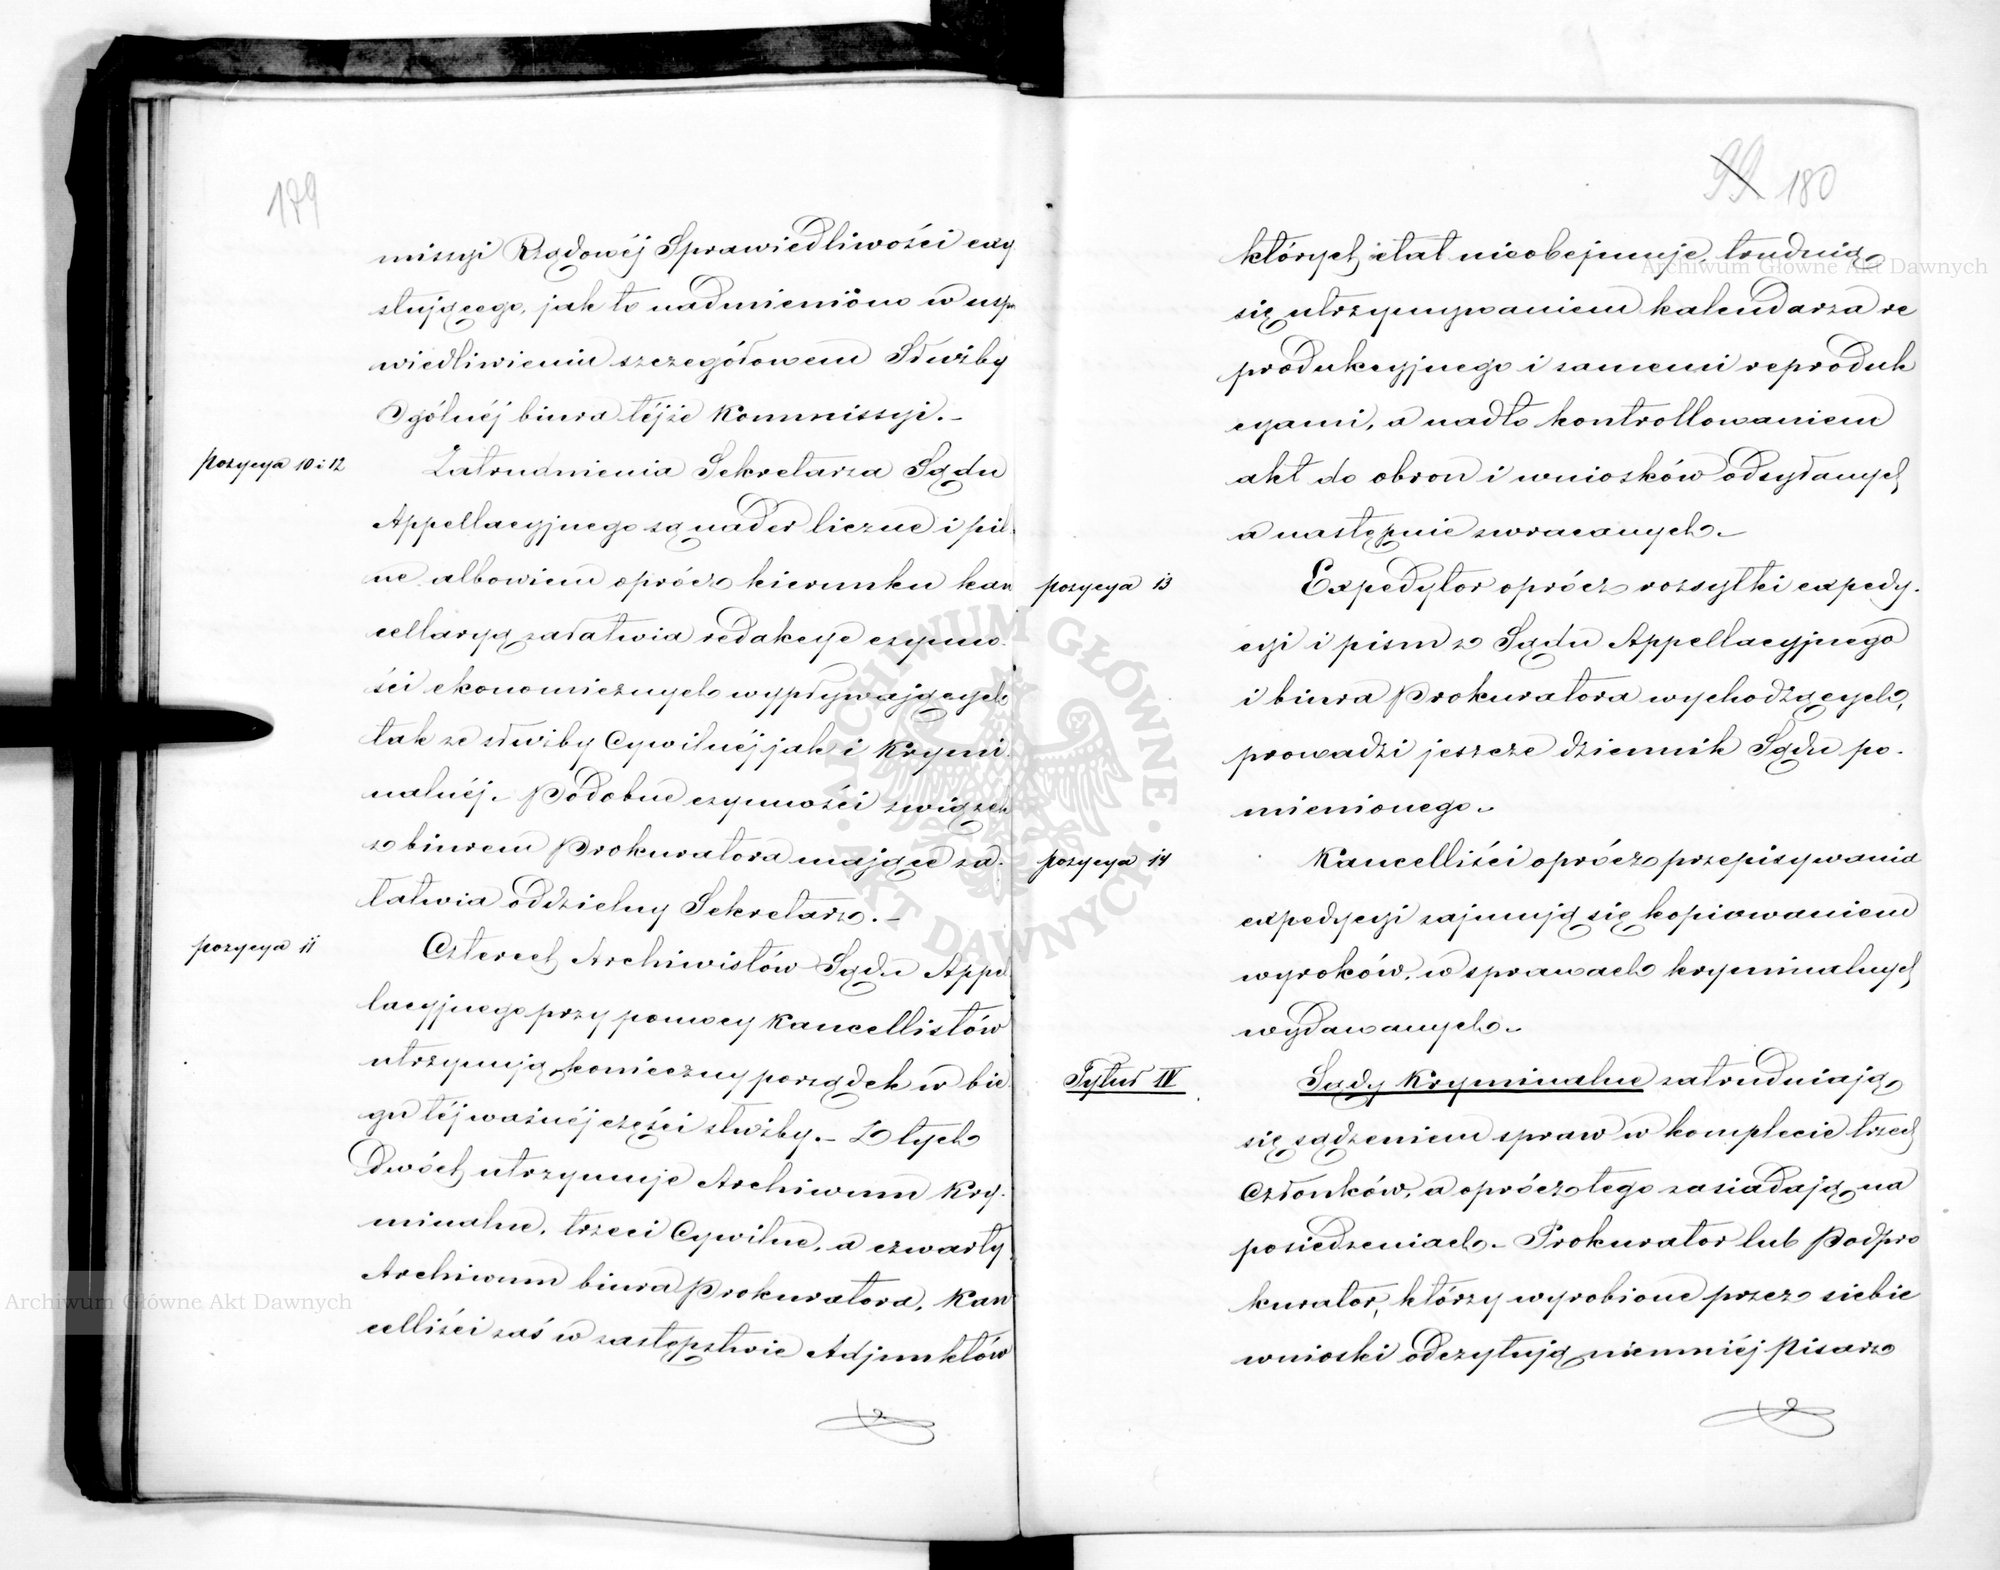 179
missyi Rządowéj Sprawiedliwości exy
stującego, jak to nadmieniono w uspr
wiedliwieniu szczegółowem Służby
Ogólnéj biura téjże Kommissyi.—
pozycya 10 i 12
Zatrudnienia Sekretarza Sądu
Appellacyjnego są nader liczne i pil-
ne albowiem oprócz kierunku kan
cellaryą załatwia redakcye czynno-
ści ekonomicznych wypływających
tak ze służby Cywilnéj jak i Krymi-
nalnéj. Podobne czynności związek
z biurem Prokuratora mające za-
łatwia oddzielny Sekretarz.—
pozycya 11
Czterech Archiwistów Sądu Appel
lacyjnego przy pomocy Kancellistów
utrzymują konieczny porządek w bie
gu téj ważnéj części służby.— Z tych
Dwóch utrzymuje Archiwum Kry-
minalne, trzeci Cywilne, a czwarty
Archiwum biura Prokuratora, Kan
celliści zaś w zastępstwie Adjunktów
99 180
których etat nieobejmuje, trudnią
się utrzymywaniem kalendarza re
produkcyjnego i samemi reproduk
cyami, a nadto kontrollowaniem
akt do obron i wniosków odsyłanych
a następnie zwracanych.—
pozycya 13
Expedytor oprócz rozsyłki expedy-
cyi i pism z Sądu Appellacyjnego
i biura Prokuratora wychodzących,
prowadzi jeszcze dziennik Sądu po-
mienionego.—
pozycya 14
Kancelliści oprócz przepisywania
expedycyi zajmują się kopiowaniem
wyroków, w sprawach kryminalnych
wydawanych.—
Tytuł IV
Sądy Kryminalne zatrudniają
się sądzeniem spraw w komplecie trzech
Członków, a oprócz tego zasiadają na
posiedzeniach— Prokurator lub Podpro
kurator, którzy wyrobione przez siebie
wnioski odczytują niemniéj Pisarz
Archiwum Główne Akt Dawnych
Archiwum Główne Akt Dawnych
ARCHIWUM GŁÓWNE AKT DAWNYCH